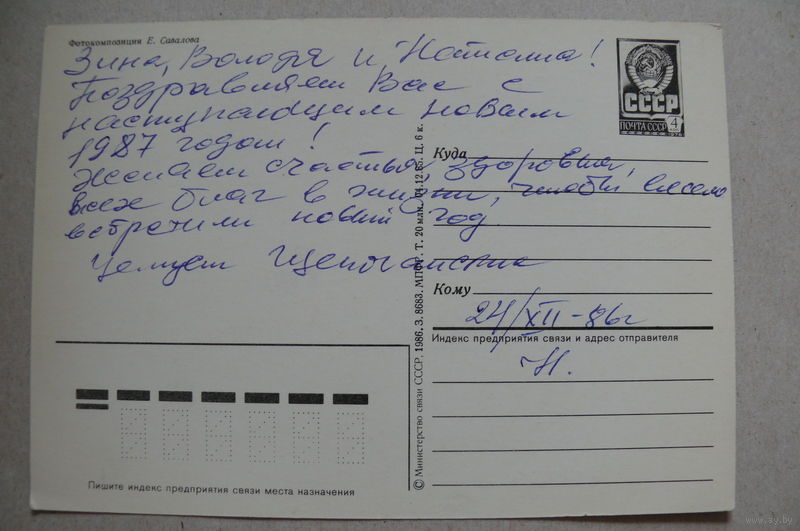 Фотокомпозиция Е. Савалова
Зина, Володя и Наташа!
Поздравляем Вас с
наступающим новым
1987 годом!
Желаем счастья, здоровья,
всех благ в жизни, чтобы весело
встретили новый год.
Целуем
24/XII-86г
Н.
ПОЧТА СССР 4
СССР
Куда
Кому
Индекс предприятия связи и адрес отправителя
© Министерство связи СССР. 1986. З. 8683. МПФГ. Т. 20 млн. 04.12.85. Ц. 6 к.
Пишите индекс предприятия связи места назначения
www.ay.by